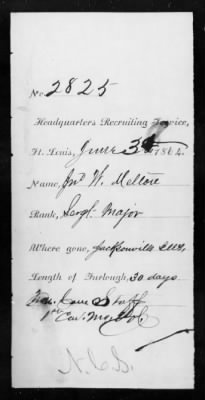 No. 2825
Headquarters Recruiting Service,
St. Louis, June 3d 1864.
Name, Jno W. Meltore
Rank, Sergt. Major
Where gone, Jacksonville Ills,
Length of Furlough, 30 days
Staff
1st Cav. Mo. Vol.
N.C.S.